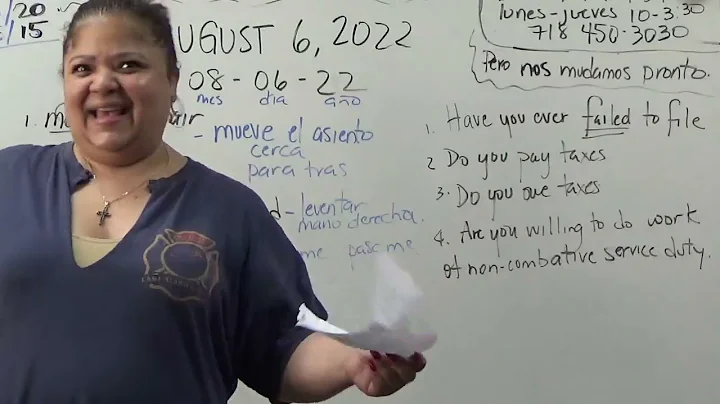 20
15
UGUST 6, 2022
08-06-22
mes dia año
1. m air
- mueve el asiento
cerca
para tras
d - leventar
mano derecha.
me pasame
lunes-jueves 10-3:30
718 450-3030
Pero nos mudamos pronto.
1. Have you ever failed to file
2 Do you pay taxes
3. Do you owe taxes
4. Are you willing to do work
of non-combative service duty.